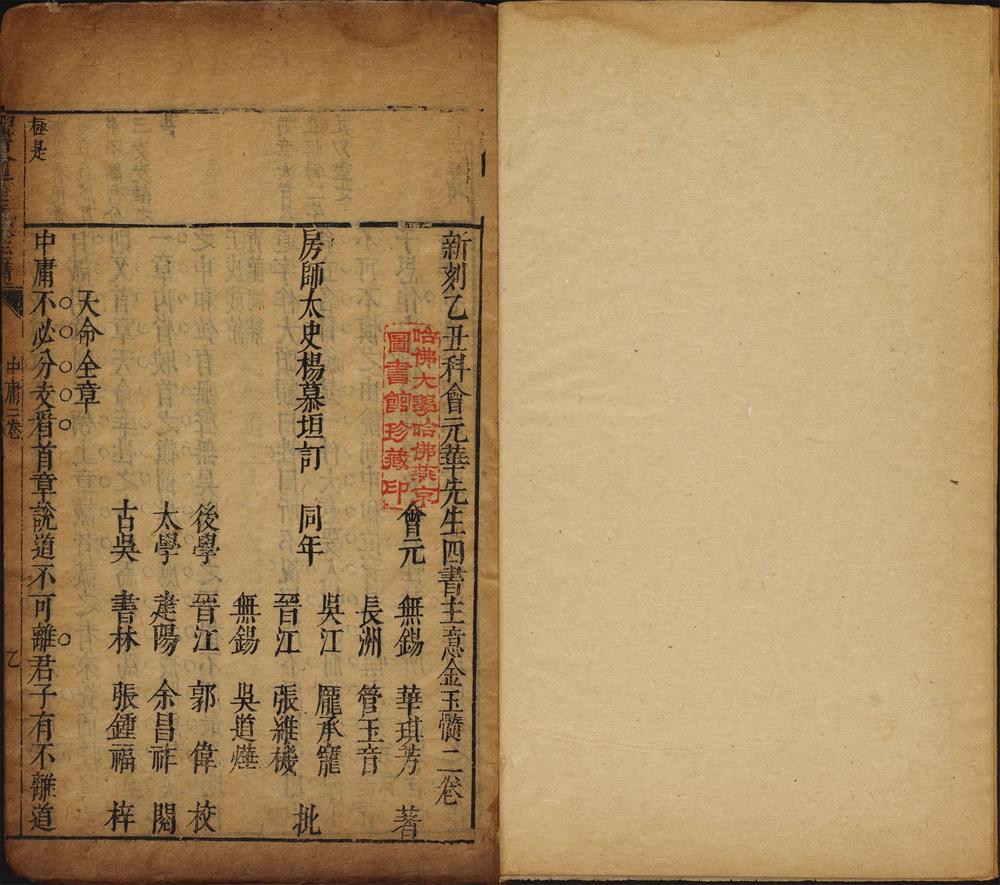 新刻乙丑科會元華先生四書主意金玉髓二卷
會元 無錫 華琪芳 著
哈佛大學哈佛燕京
圖書館珍藏印
長洲 管玉音
房師太史楊慕垣訂 同年 吳江 龐承寵 批
晉江 張維機
無錫 吳道爗
後學 晉江 郭偉 校
太學 建陽 余昌祚 閱
古吳 書林 張鍾福 梓
天命全章
極是
中庸不必分支看首章說道不可離君子有不離道
中庸二卷
乙